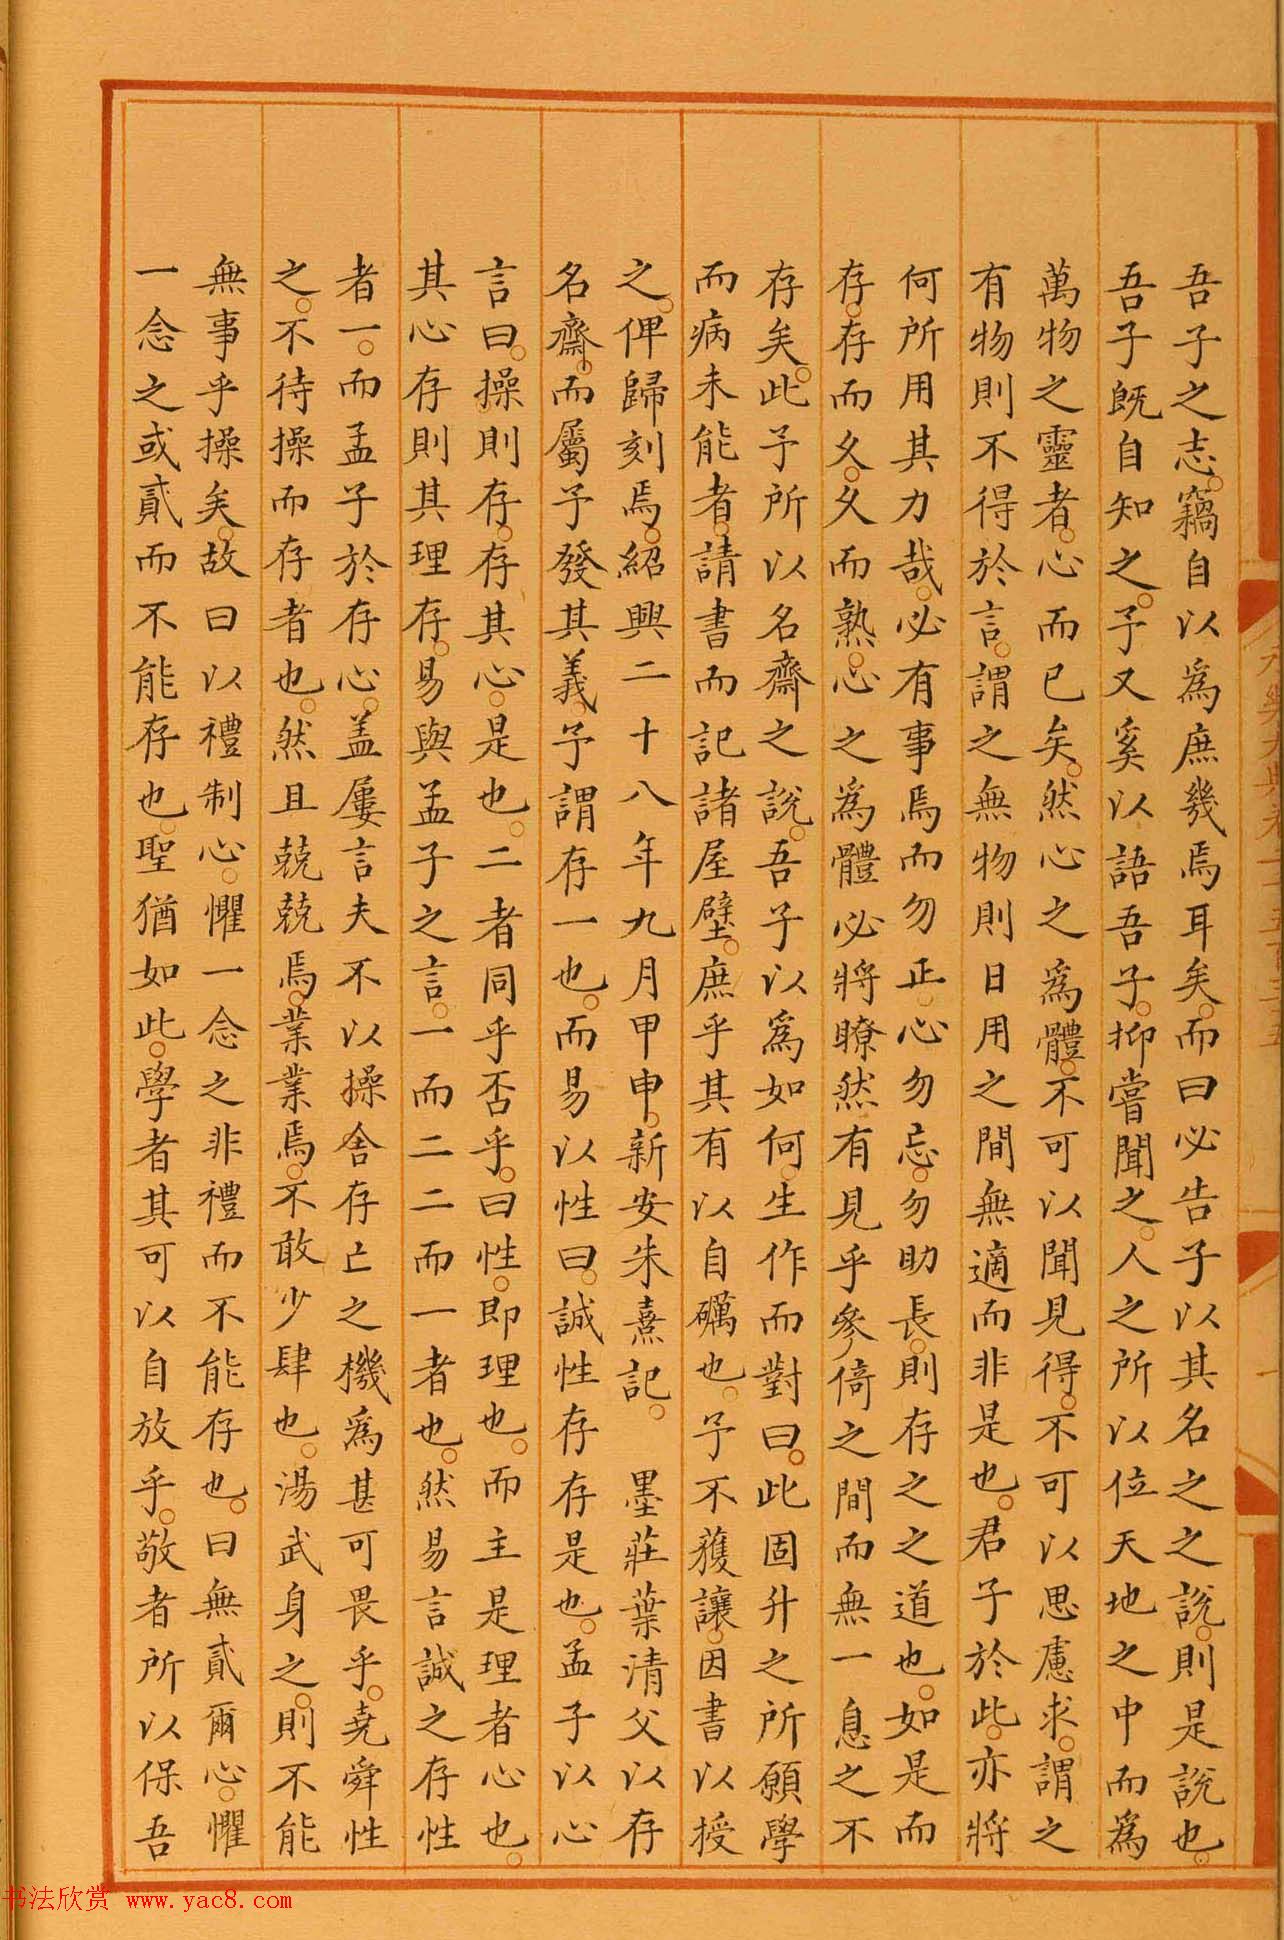 吾子之志。竊自以為庶幾焉耳矣。而曰必告子以其名之之說。則是說也。
吾子既自知之。予又奚以語吾子。抑嘗聞之。人之所以位天地之中而為
萬物之靈者。心而已矣。然心之為體。不可以聞見得。不可以思慮求。謂之
有物則不得於言。謂之無物則日用之間無適而非是也。君子於此。亦將
何所用其力哉。必有事焉而勿正。心勿忘。勿助長。則存之之道也。如是而
存。存而久。久而熟。心之為體必將瞭然有見乎參倚之間而無一息之不
存矣。此予所以名齋之說。吾子以為如何。生作而對曰。此固升之所願學
而病未能者。請書而記諸屋壁。庶乎其有以自礪也。予不獲讓。因書以授
之。俾歸刻焉。紹興二十八年九月甲申。新安朱熹記。 墨莊葉清父以存
名齋。而屬予發其義。予謂存一也。而易以性曰。誠性存存是也。孟子以心
言曰。操則存。存其心。是也。二者同乎否乎。曰性。即理也。而主是理者心也。
其心存則其理存。易與孟子之言。一而二二而一者也。然易言誠之存性
者一。而孟子於存心。盖屢言夫不以操舍存亡之機為甚可畏乎。堯舜性
之。不待操而存者也。然且兢兢焉。業業焉。不敢少肆也。湯武身之。則不能
無事乎操矣。故曰以禮制心。懼一念之非禮而不能存也。曰無貳爾心。懼
一念之或貳而不能存也。聖猶如此。學者其可以自放乎。敬者所以保吾
书法欣赏 www.yac8.com